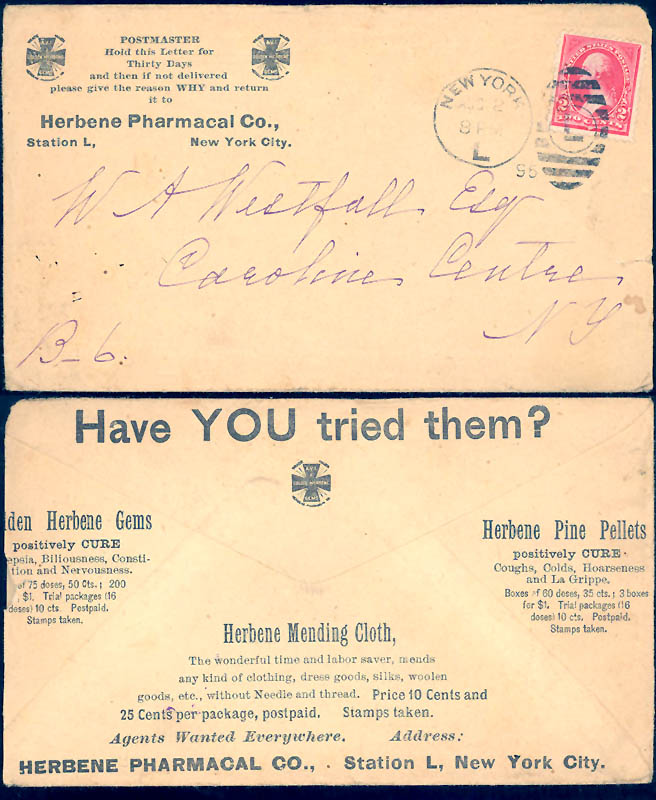 POSTMASTER
Hold this Letter for
Thirty Days
and then if not delivered
please give the reason WHY and return
it to
Herbene Pharmacal Co.,
Station L, New York City.
NEW YORK
AUG 2
8 PM
L
95
TWO CENTS
W A Westfall Esq
Caroline Centre
NY
B-6.
Have YOU tried them?
GOLDEN HERBENE
GEMS
lden Herbene Gems
positively CURE
epsia, Biliousness, Consti-
tion and Nervousness.
of 75 doses, 50 Cts.; 200
$1. Trial packages (16
doses) 10 cts. Postpaid.
Stamps taken.
Herbene Pine Pellets
positively CURE
Coughs, Colds, Hoarseness
and La Grippe.
Boxes of 60 doses, 35 cts.; 3 boxes
for $1. Trial packages (16
doses) 10 cts. Postpaid.
Stamps taken.
Herbene Mending Cloth,
The wonderful time and labor saver, mends
any kind of clothing, dress goods, silks, woolen
goods, etc., without Needle and thread. Price 10 Cents and
25 Cents per package, postpaid. Stamps taken.
Agents Wanted Everywhere. Address:
HERBENE PHARMACAL CO., Station L, New York City.